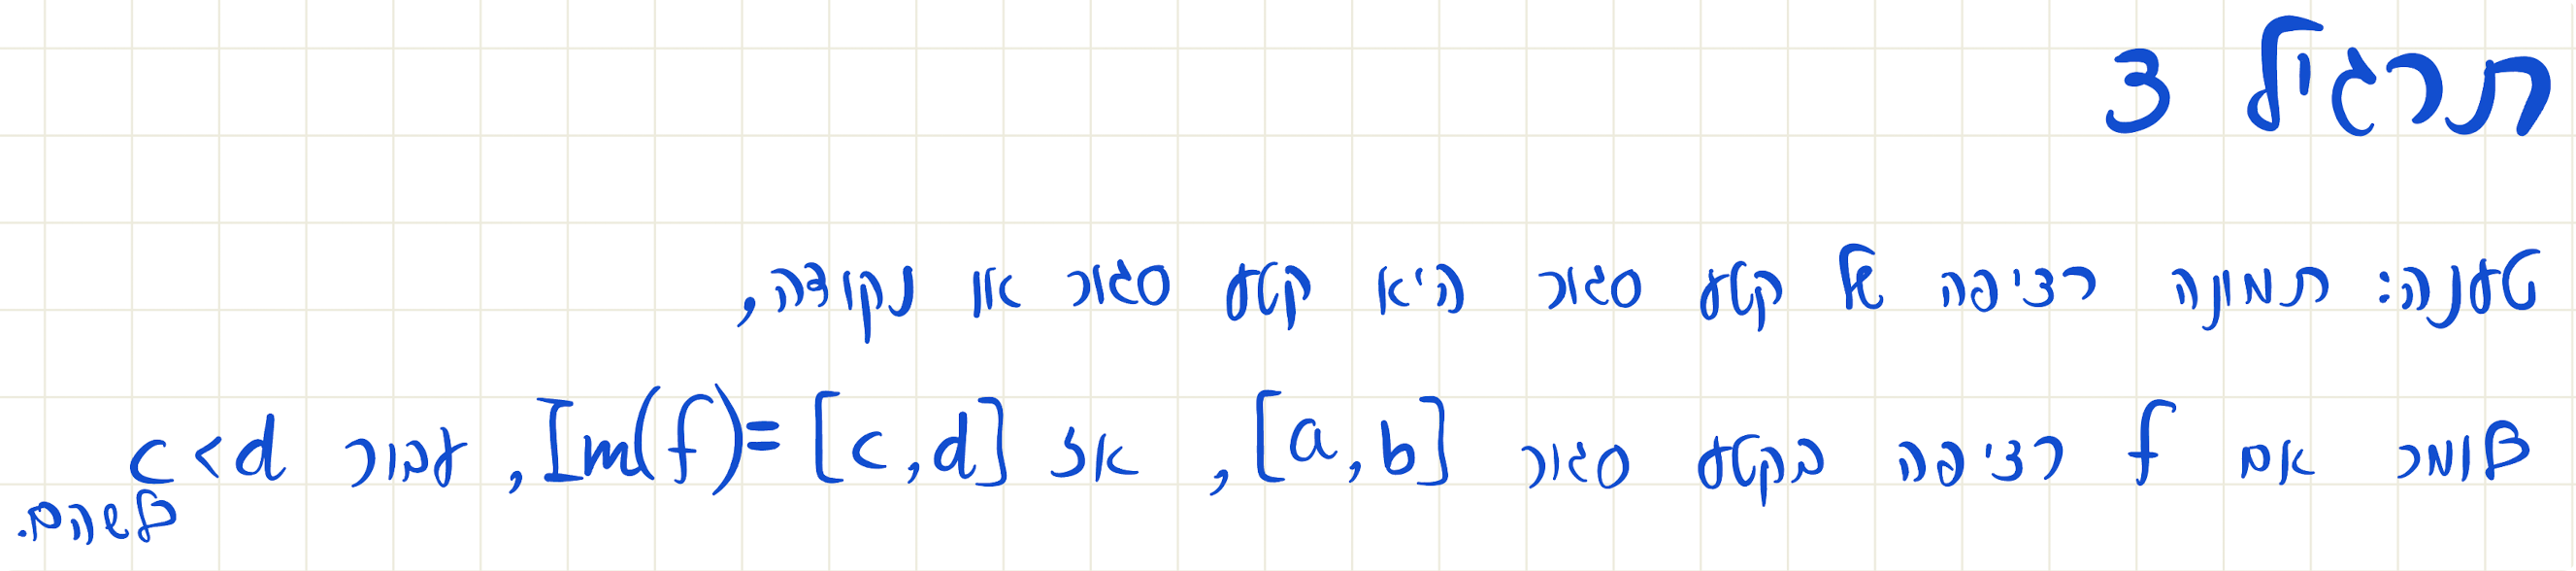 תרגיל 3
טענה: תמונה רציפה של קטע סגור היא קטע סגור או נקודה,
כלומר אם f רציפה בקטע סגור [a,b], אז Im(f)=[c,d], עבור c<d
כלשהם.